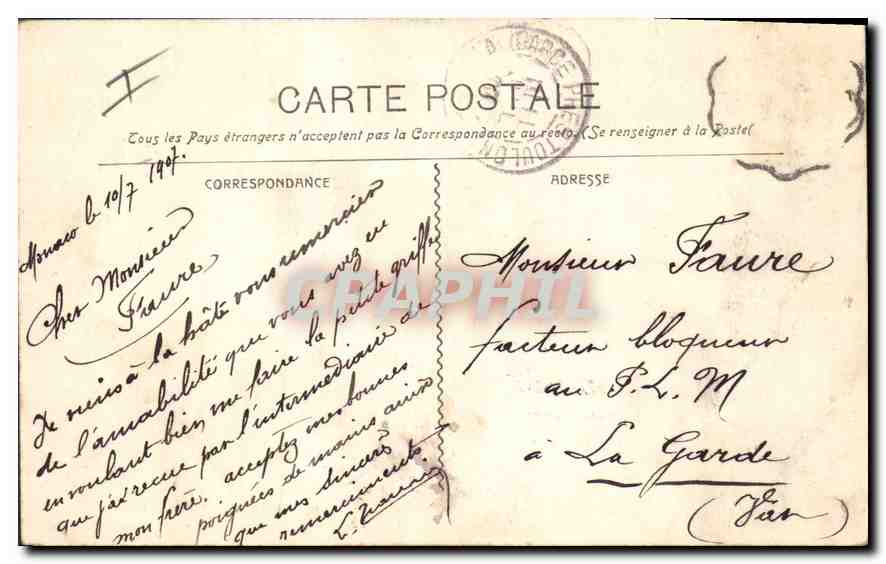 CARTE POSTALE
Tous les Pays étrangers n'acceptent pas la Correspondance au recto. (Se renseigner à la Poste)
CORRESPONDANCE
ADRESSE
LA GARDE PRÈS TOULON
Monaco le 10/7 1907.
Cher Monsieur
Faure
Je viens à la hâte vous remercier
de l'amabilité que vous avez eu
en voulant bien me faire la petite griffe
que j'ai recue par l'intermédiaire de
mon frère. acceptez mes bonnes
poignées de mains ainsi
que mes sincères
remerciments.
Monsieur Faure
facteur bloqueur
au P. L. M
à La Garde
(Var)
CPAPHIL